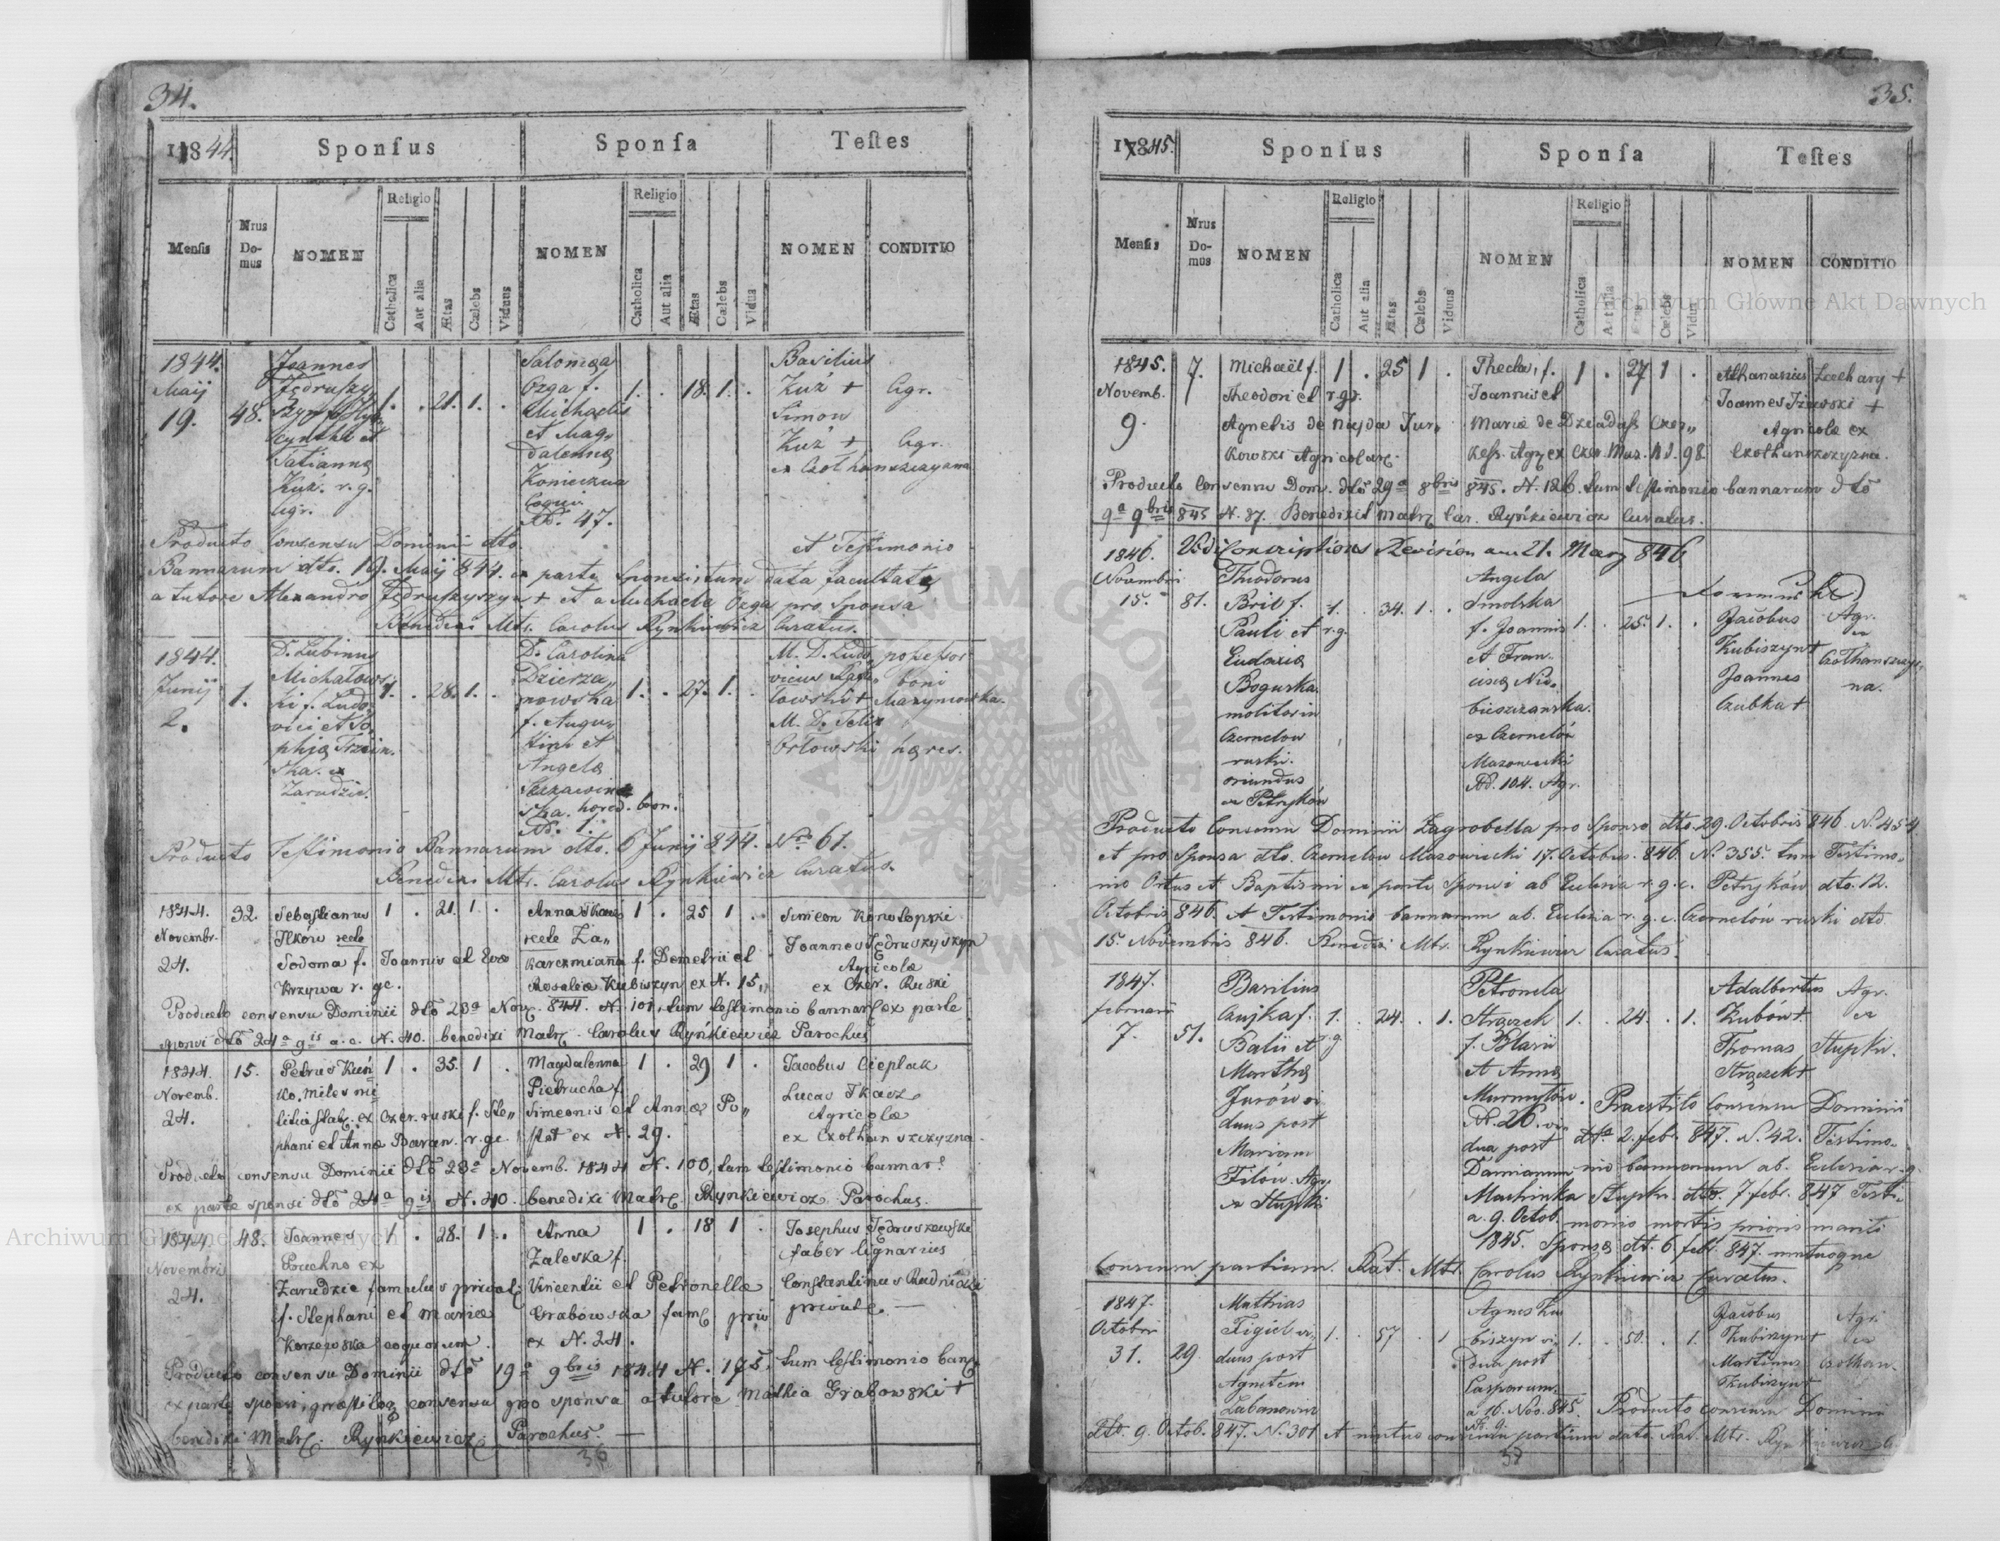 34.
1844.
Sponsus
Sponsa
Testes
Mensis
Nrus Domus
NOMEN
Religio
Catholica
Aut alia
Ætas
Cælebs
Viduus
NOMEN
Religio
Catholica
Aut alia
Ætas
Cælebs
Vidua
NOMEN
CONDITIO
1844.
Maij
19.
48.
Joannes
Jędruszy
cynthli et
Tatianna
Kuź. r. g.
Agr.
1. . 21. 1. .
Salomea
Ozga f.
Michaelis
et Mag„
dalenna
Konieczna
N. 47.
1. . 18. 1. .
Basilius
Kuź + Agr.
Simon
Kuź + Agr.
ex Czołhanszczyzna
Producto Consensu Dominii dto. et Testimonio
Bannarum dto. 19. Maij 844. ex parte Sponsi, tum data facultate
a tutore Alexandro Jędruszyszyn + et a Michaele Ozga pro Sponsa
Benedixi Mtr. Carolus Rynkiewicz Curatus.
1844.
Junij
2.
1.
D. Lubinus
Michałows
ki f. Ludo
vici et So
phia Trzcin
ska. ex
Zarudzie.
1. . 28. 1. .
D. Carolina
Dzierza„
nowska
f. Augu„
stini et
Angela
ska. hered. bon.
N. 1.
1. . 27. 1. .
M. D. Ludo„ possessor
vicus Raf„ boni
łowski +
M. D. Felix
Orłowski hæres.
Producto Testimonio Bannarum dto. 6 Junij 844. Nro 61.
Benedixi Mtr. Carolus Rynkiewicz Curatus.
1844.
Novembr.
24.
32.
Sebastianus
Ilków recte
Sodoma f. Joannis et Evæ
Krzywa r. gc.
1 . 21. 1 .
Anna Tkacz
recte Za„
karczmiana f. Demetrii et
Rosaliæ Kubiszyn ex N. 15„
1 . 25 1 .
Simeon Konolopski
Joannes Jędruszyszyn
Agricolæ
ex Czer. Ruski
Producto consensu Dominii dto 23a Nov. 844. N. 101, tum testimonio bannar. ex parte
sponsi dto 24a 9is a. c. N. 40. benedixi Matr. Carolus Ryńkiewicz Parochus
1844
Novemb.
24.
15.
Petrus Kuń
ko. miles mi
litiæ stab. ex Czer. ruski f. Ste„
phani et Annæ Baran. r. gc.
1 . 35. 1 .
Magdalenna
Pietrucha f.
Simeonis et Annæ Po„
stat ex N. 29.
1 . 29 1 .
Jacobus Cieplak
Lucas Tkacz
Agricolæ
ex Czołhan szczyzna.
Producto consensu Dominii dto 23a Novemb. 1844 N. 100, tum testimonio bannar.
ex parte sponsi dto 24a 9is N. 40. benedixi Matr. Rynkiewicz Parochus.
1844
Novembris
24.
48.
Joannes
Puchno ex
Zarudzie famulus privat.
f. Stephani et Mariæ
Korzeroska coquorum.
1 . 28. 1 .
Anna
Zaleska f.
Vincentii et Petronellæ
Grabowska fam. priv
ex N. 24.
1 . 18 1 .
Josephus Jędruszewski
faber lignarius
Constantinus Rudnicki
privatæ. —
Producto consensu Dominii dto 19a 9bris 1844 N. 175. tum testimonio ban.
ex parte sponsi, præstito consensu pro sponsa a tutore Mathia Grabowski +
benedixi Matr. Rynkiewicz Parochus. —
36
35.
1845.
Sponsus
Sponsa
Testes
Mensis
Nrus Domus
NOMEN
Religio
Catholica
Aut alia
Ætas
Cælebs
Viduus
NOMEN
Religio
Catholica
Aut alia
Cælebs
Vidua
NOMEN
CONDITIO
1845.
Novemb.
9.
7.
Michaël f.
Theodori et r. gr.
Agnetis de Nayda Jur„
kowski Agricolar.
1 . 25 1 .
Thecla, f.
Joannis et
Mariæ de Dziadas Czer„
1 . 27 1 .
Athanasius Zachary +
Joannes +
Agricolæ ex
Czołhanszczyzna.
Producto Consensu Dom. dto 29a 8bris 845. N. 126. tum testimonio bannarum dto
9a 9bris 845 N. 87. Benedixit Matr. Car. Ryńkiewicz Curatus.
1846.
Vidi Conscriptions Revision am 21. Marz 846
Novembris
15.
81.
Theodorus
Bril f.
Pauli et r. g.
Eudoxia
Boguska
molitor in
Czernelow
ruski.
oriundus
ex Petryków
1. . 34. 1. .
Angela
Smolska
f. Joannis
et Fran„
cisca Nie„
bieszczanska.
ex Czernelów
Mazowiecki
N. 104. Agr.
1. . 25. 1. .
Jacobus Agr.
Kubiszyn + ex
Joannes Czołhanszczyz„
Czubka + na.
Producto Consensu Dominii Zagrobella pro Sponso dto. 29. Octobris 846. N. 454
et pro Sponsa dto. Czernelow Mazowiecki 17. Octobris. 846. N. 355. tum Testimo„
nio Ortus et Baptismi ex parte Sponsi ab Ecclesia r. g. c. Petryków dto. 12.
Octobris 846. et Testimonio bannarum ab. Ecclesia r. g. c. Czernelów ruski dto
15. Novembris 846. Benedixi Mtr. Rynkiewicz Curatus.
1847.
februarii
7.
51.
Basilius
Czujka f.
Basilii et r. g.
Martha
Jurów vi
duus post
Mariam
Filów Agr.
ex Stupki
1. . 24. . 1.
Petronela
Strączek
f. Blasii
et Anna
Murmyłów.
N. 26. vi„
dua post
Damianum
Machinka
a. 9. Octob.
1845.
1. . 24. . 1.
Adalbertus Agr.
Kubów + ex
Thomas Stupki.
Strączek +
Praestito Consensu Dominii
dto 2. febr. 847. N. 42. Testimo„
nio bannarum ab. Ecclesia r. g.
Stupki dto. 7 febr. 847 Testi„
monio mortis prioris mariti
Sponsæ dt. 6. febr. 847. mutuoque
Consensu partium. Rat. Mtr. Carolus Rynkiewicz Curatus.
1847.
Octobris
31.
29.
Mathias
Figiel vi„
duus post
Agnetem
Labanowicz
1. . 57 . 1
Agnes Ku
biszyn vi„
dua post
Casparum
a 16. Nov. 845.
N. 9.
1. . 50. . 1.
Jacobus Agr.
Kubiszyn + ex
Martinus Czołhan.
Kubiszyn +
Producto consensu Dominii
dto. 9. Octob. 847. N. 301 et mutuo consensu partium dato. Rat. Mtr. Rynkiewicz C.
37
Archiwum Główne Akt Dawnych
Archiwum Główne Akt Dawnych